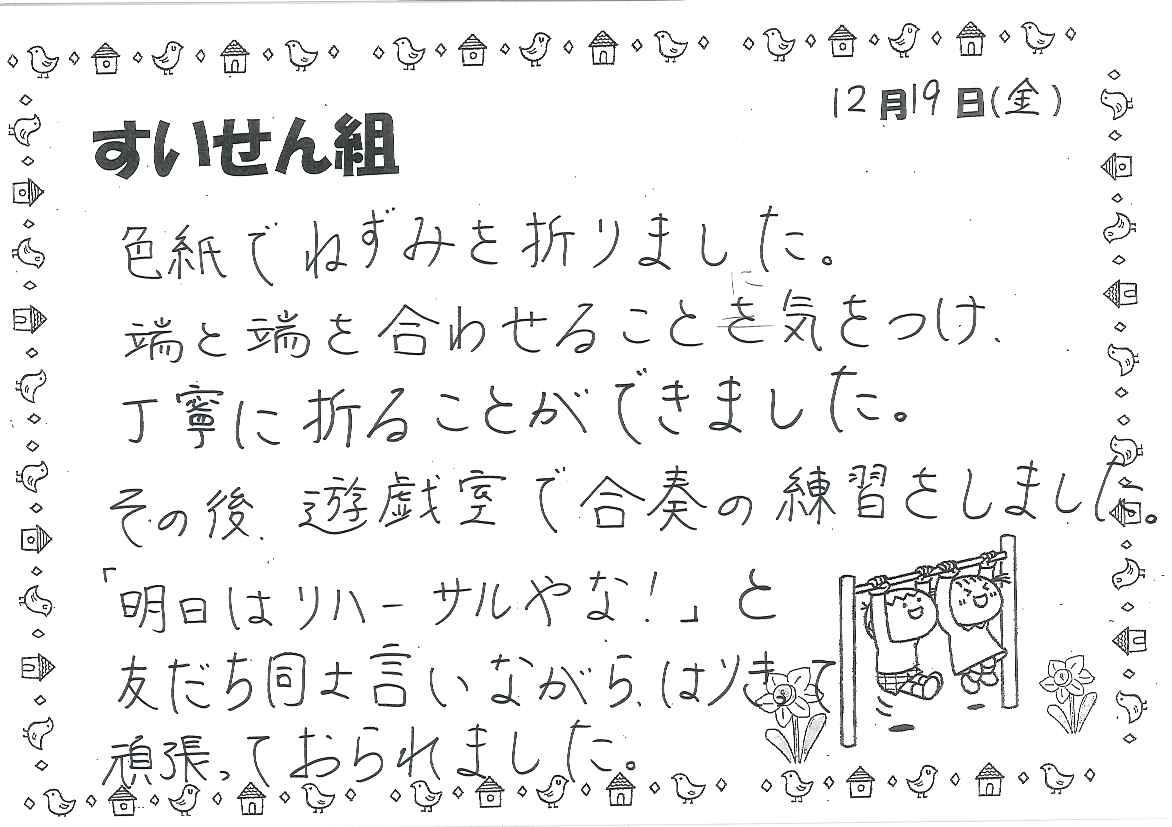 12月19日(金)
すいせん組
色紙でねずみを折りました。
端と端を合わせることに気をつけ、
丁寧に折ることができました。
その後、遊戯室で合奏の練習をしました。
「明日はリハーサルやな!」と
友だち同士言いながら、はりきって
頑張っておられました。